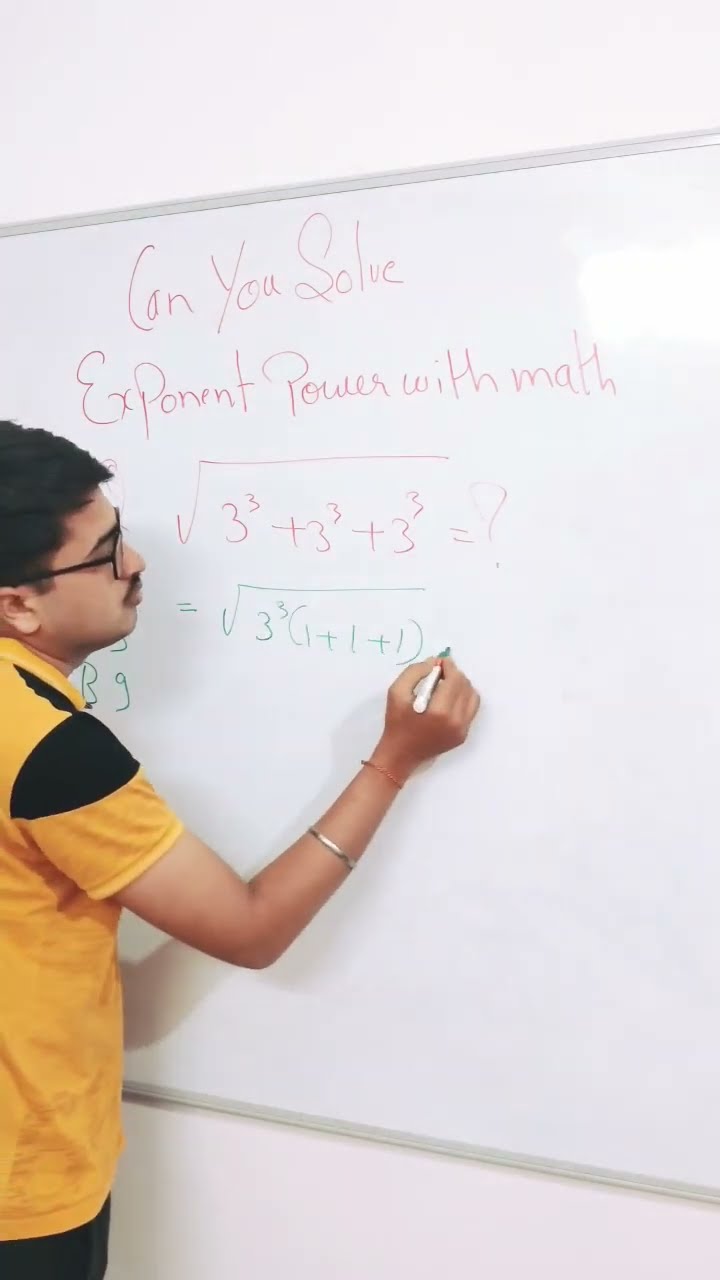 Can You Solve
Exponent Power with math
√3³ + 3³ + 3³ = ?
= √3³(1+1+1)
B 9